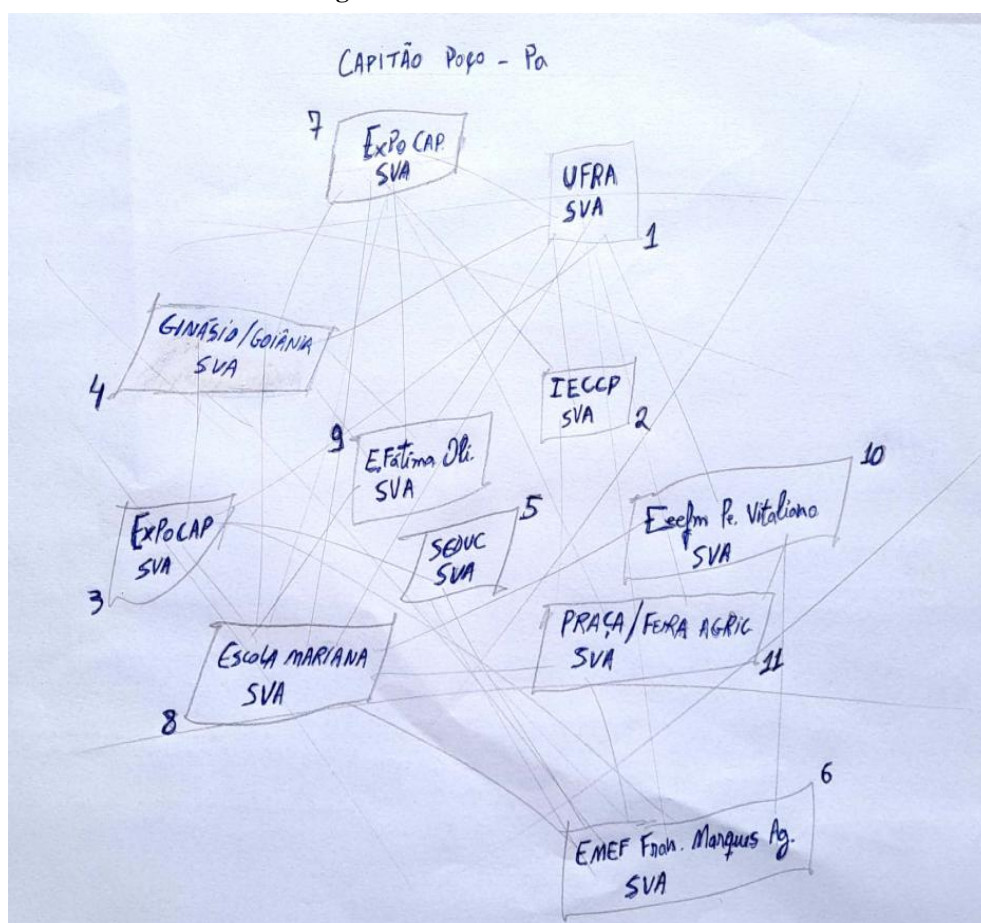 CAPITÃO POÇO - Pa
7
ExPoCAP
SVA
UFRA
SVA
1
GINÁSIO/GOIÂNIA
SVA
4
IECCP
SVA
2
9
E.Fátima Oli.
SVA
10
Eeefm Pe. Vitaliano
SVA
5
SEDUC
SVA
ExPoCAP
SVA
3
PRAÇA/FEIRA AGRIC
SVA
11
ESCOLA MARIANA
SVA
8
6
EMEF Fran. Marques Ag.
SVA